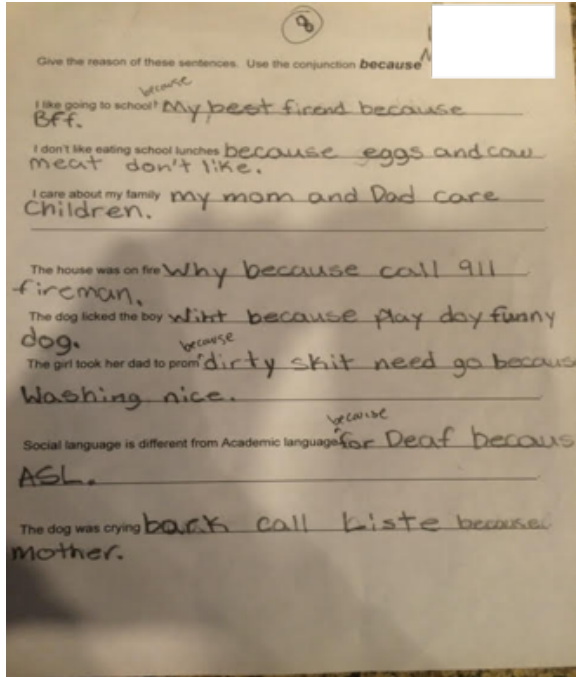 8
Give the reason of these sentences. Use the conjunction because
because
I like going to school^ My best firend because
Bff.
I don't like eating school lunches because eggs and cow
meat don't like.
I care about my family my mom and Dad care
Children.
The house was on fire Why because call 911
fireman.
The dog licked the boy because play day funny
dog.
because
The girl took her dad to prom^ dirty skit need go becaus
Washing nice.
because
Social language is different from Academic language^ for Deaf becaus
ASL.
The dog was crying bark call because
mother.